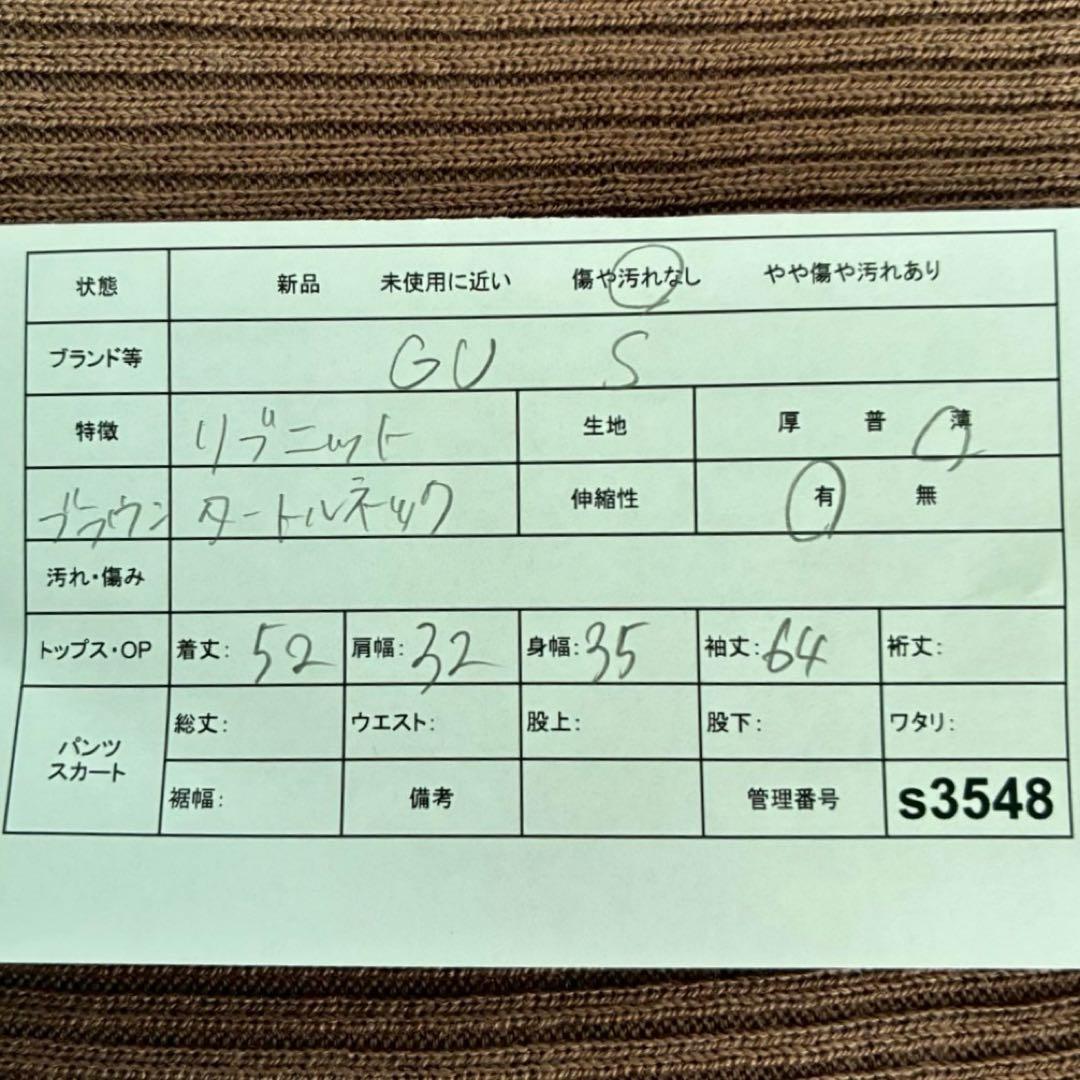 状態 新品 未使用に近い 傷や汚れなし やや傷や汚れあり
ブランド等 GU S
特徴 リブニット 生地 厚 普 薄
ブラウン タートルネック 伸縮性 有 無
汚れ・傷み
トップス・OP 着丈: 52 肩幅: 32 身幅: 35 袖丈: 64 裄丈:
パンツ
スカート
総丈: ウエスト: 股上: 股下: ワタリ:
裾幅: 備考 管理番号 s3548